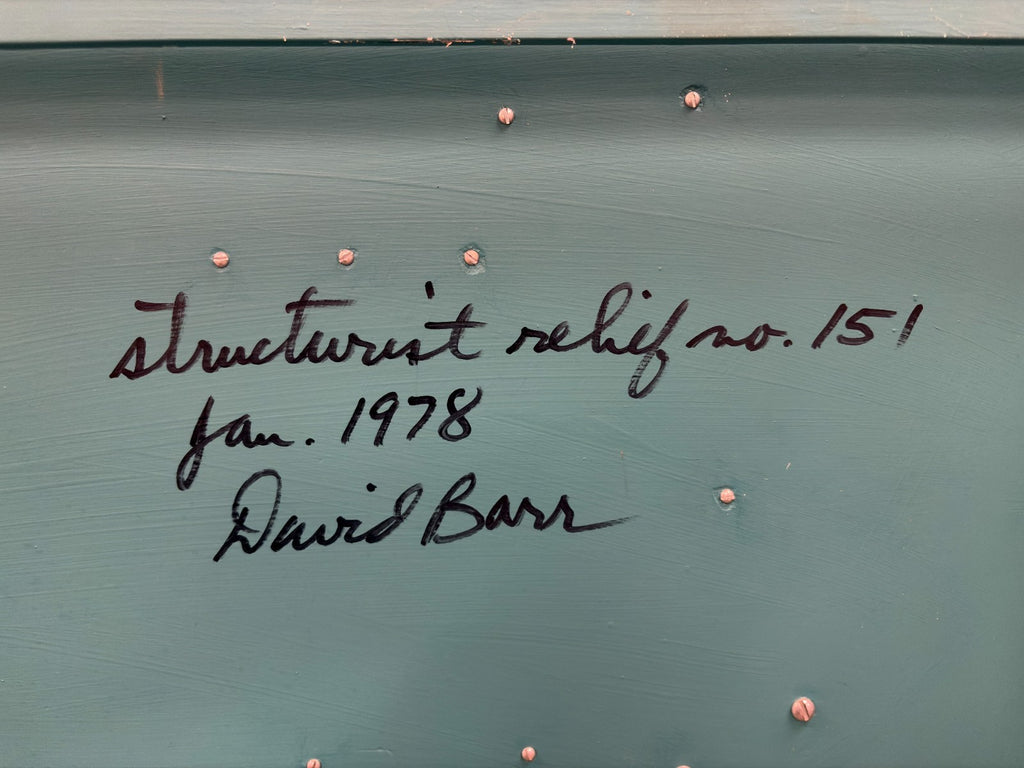 structurist relief no. 151
Jan. 1978
David Barr